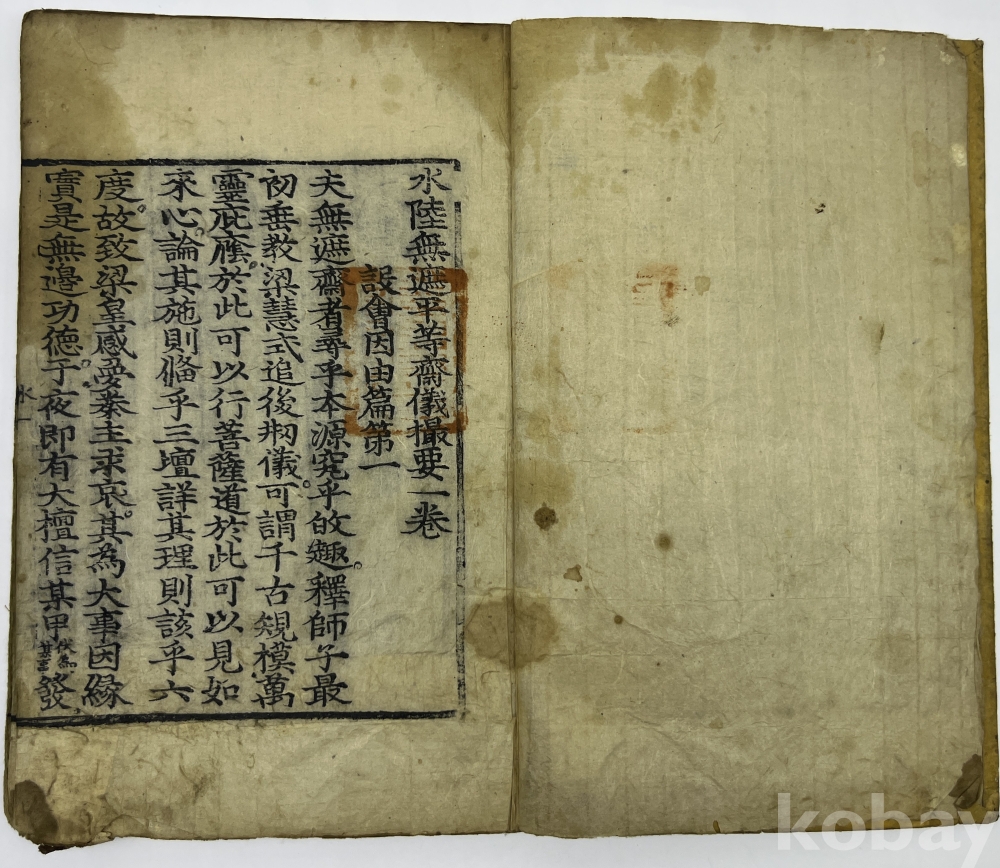 水陸無遮平等齋儀撮要一卷
設會因由篇第一
夫無遮齋者尋乎本源究乎的趣釋師子最
初垂教梁慧式追後刱儀可謂千古規模萬
靈庇廕於此可以行菩薩道於此可以見如
來心論其施則俻乎三壇詳其理則該乎六
度故致梁皇感愛秦主求哀其為大事因緣
實是無邊功德于夜即有大檀信某甲 伏為 發
水
kobay